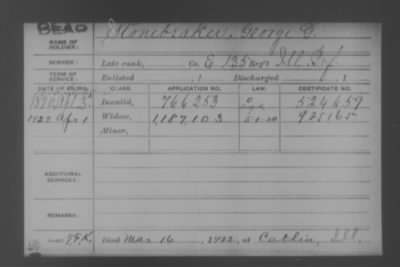 DEAD
NAME OF SOLDIER: Stonebraker, George
SERVICE: Late rank, Co. E, 135 Reg't Ill. Inf.
TERM OF SERVICE: Enlisted , 1 Discharged , 1
DATE OF FILING. CLASS. APPLICATION NO. LAW. CERTIFICATE NO.
1890 Invalid, 766253 524659
1922 Apr 1 Widow, 1,187,103 5-1-20 925165
Minor,
ADDITIONAL SERVICES:
REMARKS:
Died Mar 16, 1922, at Catlin, Ill.